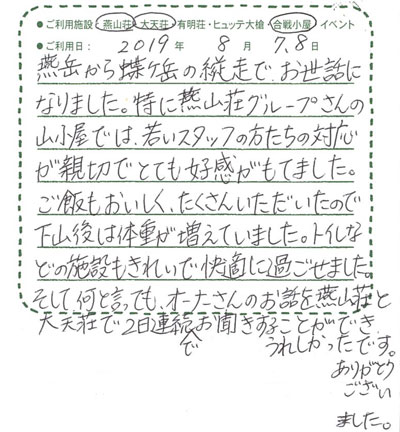 ●ご利用施設 燕山荘・大天荘・有明荘・ヒュッテ大槍・合戦小屋・イベント
●ご利用日： 2019 年 8 月 7.8 日
燕岳から蝶ヶ岳の縦走で、お世話に
なりました。特に燕山荘グループさんの
山小屋では、若いスタッフの方たちの対応
が親切でとても好感がもてました。
ご飯もおいしく、たくさんいただいたので
下山後は体重が増えていました。トイレな
どの施設もきれいで快適に過ごせました。
そして何と言っても、オーナーさんのお話を燕山荘と
大天荘で2日連続でお聞きすることができ
うれしかったです。
ありがとう
ござい
ました。